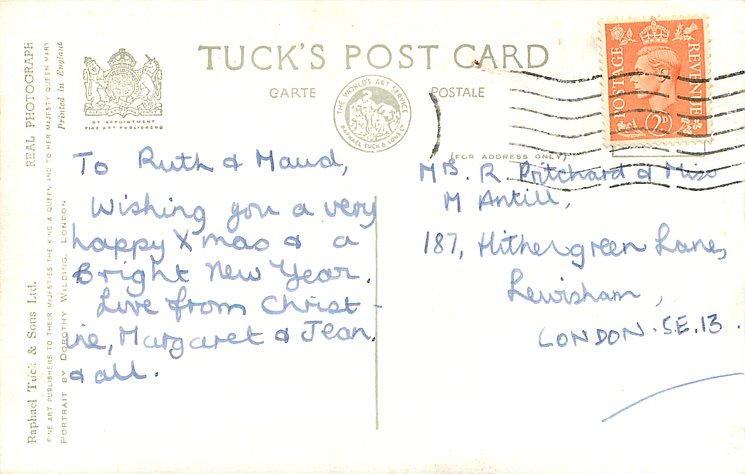 TUCK'S POST CARD
CARTE POSTALE
(FOR ADDRESS ONLY)
BY APPOINTMENT
FINE ART PUBLISHERS
THE WORLD'S ART SERVICE
RAPHAEL TUCK & SONS LTD
POSTAGE REVENUE
2D
REAL PHOTOGRAPH
Printed in England
Raphael Tuck & Sons Ltd.
FINE ART PUBLISHERS TO THEIR MAJESTIES THE KING & QUEEN AND TO HER MAJESTY QUEEN MARY
PORTRAIT BY DOROTHY WILDING, LONDON
To Ruth & Maud,
Wishing you a very
happy Xmas & a
Bright New Year.
Love from Christ-
ine, Margaret & Jean.
& all.
R. Pritchard & Miss
M Antill,
187, Hithergreen Lane,
Lewisham,
LONDON. S.E. 13.